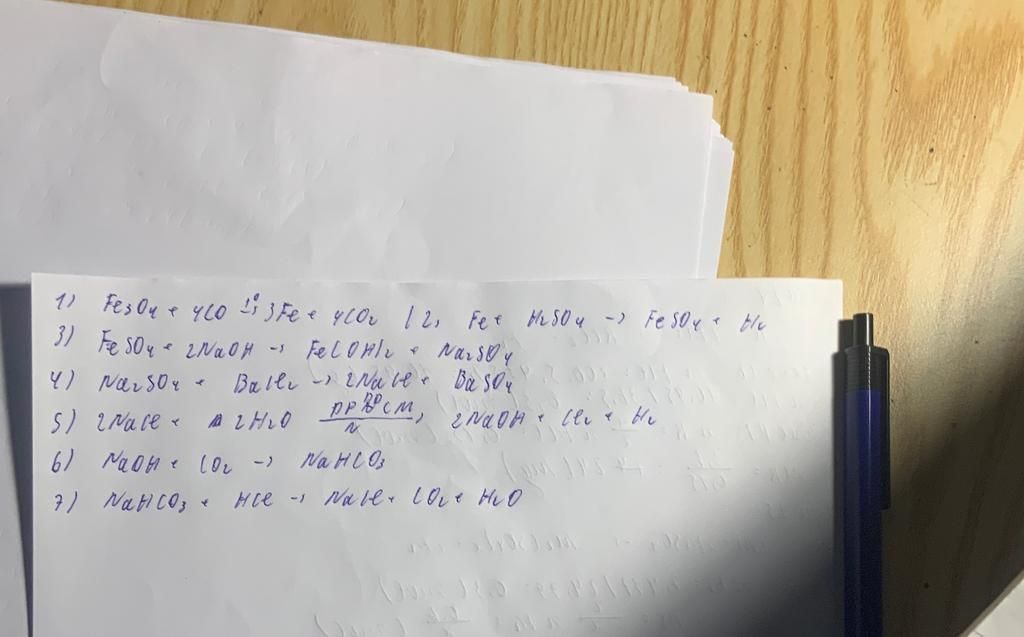 1) Fe3O4 + 4CO t°→ 3Fe + 4CO2 | 2, Fe + H2SO4 → FeSO4 + H2
3) FeSO4 + 2NaOH → Fe(OH)2 + Na2SO4
4) Na2SO4 + BaCl2 → 2NaCl + BaSO4
5) 2NaCl + 2H2O 2NaOH + Cl2 + H2
6) NaOH + CO2 → NaHCO3
7) NaHCO3 + HCl → NaCl + CO2 + H2O